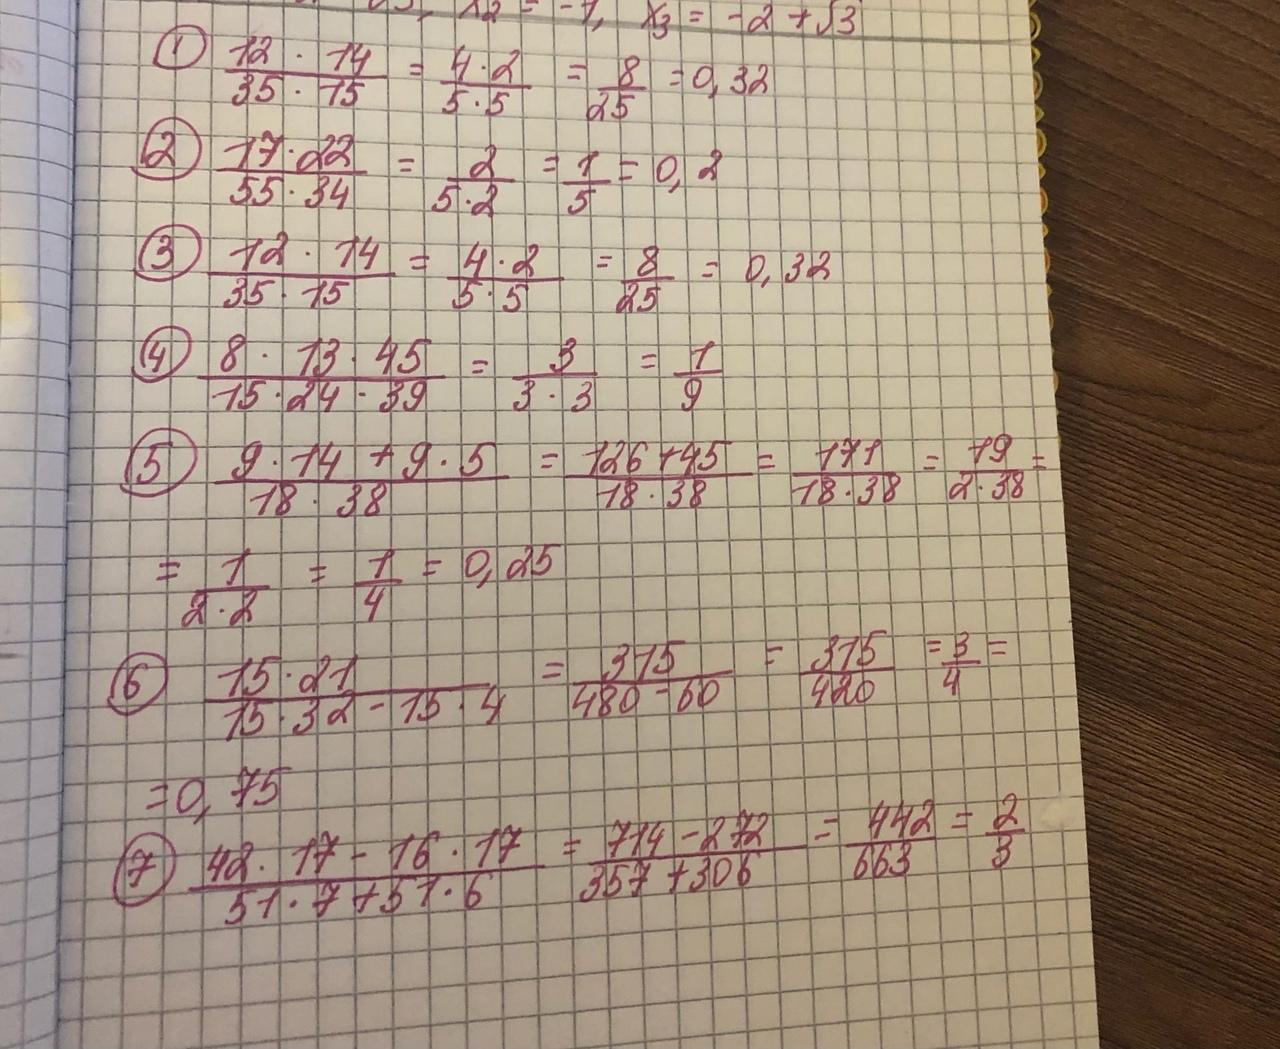 x₂ = -1, x₃ = -2 + √3
① 12 · 14 / 35 · 15 = 4 · 2 / 5 · 5 = 8 / 25 = 0,32
② 17 · 22 / 55 · 34 = 2 / 5 · 2 = 1 / 5 = 0,2
③ 12 · 14 / 35 · 15 = 4 · 2 / 5 · 5 = 8 / 25 = 0,32
④ 8 · 13 · 45 / 15 · 24 · 39 = 3 / 3 · 3 = 1 / 9
⑤ 9 · 14 + 9 · 5 / 18 · 38 = 126 + 45 / 18 · 38 = 171 / 18 · 38 = 19 / 2 · 38 =
= 1 / 2 · 2 = 1 / 4 = 0,25
⑥ 15 · 21 / 15 · 32 - 15 · 4 = 315 / 480 - 60 = 315 / 420 = 3 / 4 =
= 0,75
⑦ 42 · 17 - 16 · 17 / 51 · 7 + 51 · 6 = 714 - 272 / 357 + 306 = 442 / 663 = 2 / 3